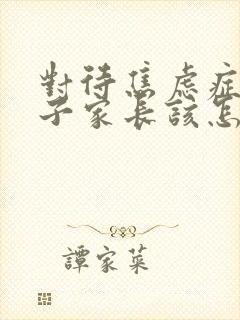 對待焦慮症
子家長該怎
譚家菜